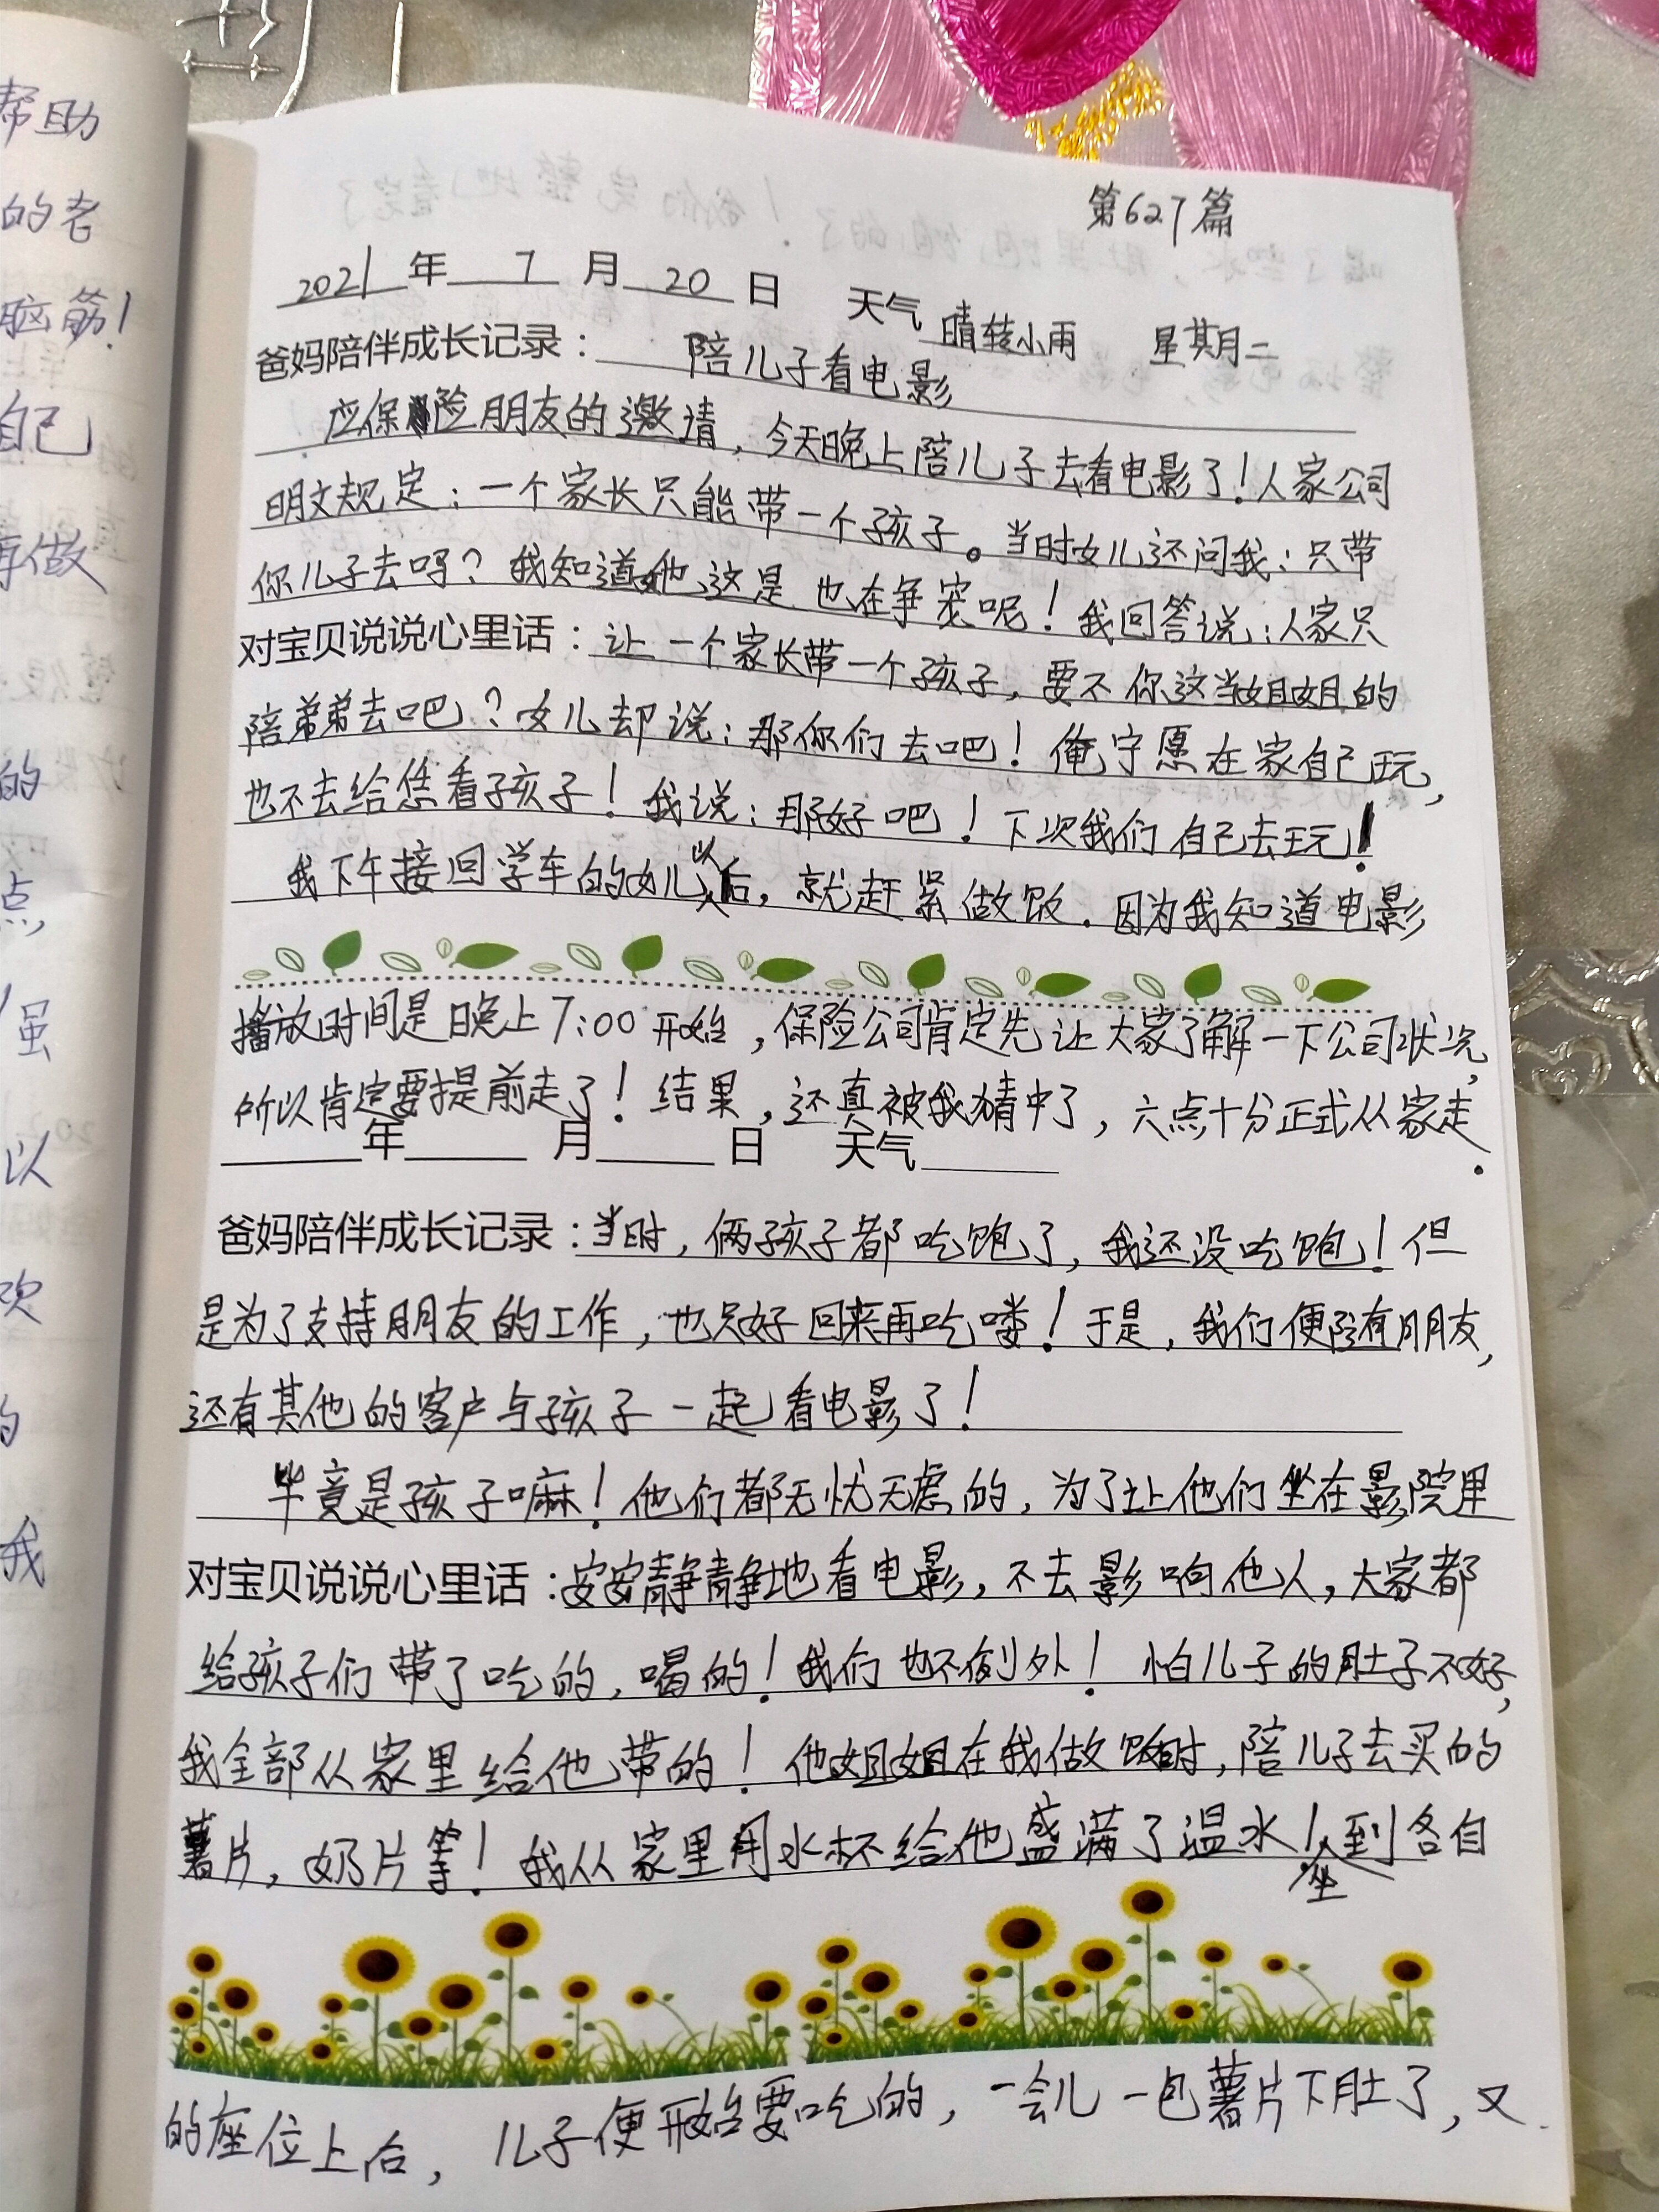 帮助
的老
脑筋!
自己
再做
的
点,
虽
以
欢
的
我
第627篇
2021年7月20日 天气 晴转小雨 星期二
爸妈陪伴成长记录: 陪儿子看电影
应保险朋友的邀请,今天晚上陪儿子去看电影了!人家公司
明文规定:一个家长只能带一个孩子。当时女儿还问我:只带
你儿子去吗?我知道她这是也在争宠呢!我回答说:人家只
对宝贝说说心里话:让一个家长带一个孩子,要不你这当姐姐的
陪弟弟去吧?女儿却说:那你们去吧!俺宁愿在家自己玩,
也不去给恁看孩子!我说:那好吧!下次我们自己去玩!
我下午接回学车的女儿以后,就赶紧做饭.因为我知道电影
播放时间是晚上7:00开始,保险公司肯定先让大家了解一下公司状况,
所以肯定要提前走了!结果,还真被我猜中了,六点十分正式从家走.
年 月 日 天气
爸妈陪伴成长记录:当时,俩孩子都吃饱了,我还没吃饱!但
是为了支持朋友的工作,也只好回来再吃喽!于是,我们便陪有朋友,
还有其他的客户与孩子一起看电影了!
毕竟是孩子嘛!他们都无忧无虑的,为了让他们坐在影院里
对宝贝说说心里话:安安静静地看电影,不去影响他人,大家都
给孩子们带了吃的,喝的!我们也不例外!怕儿子的肚子不好,
我全部从家里给他带的!他姐姐在我做饭时,陪儿子去买的
薯片,奶片等!我从家里用水杯给他盛满了温水!坐到各自
的座位上后,儿子便开始要吃的,一会儿一包薯片下肚了,又